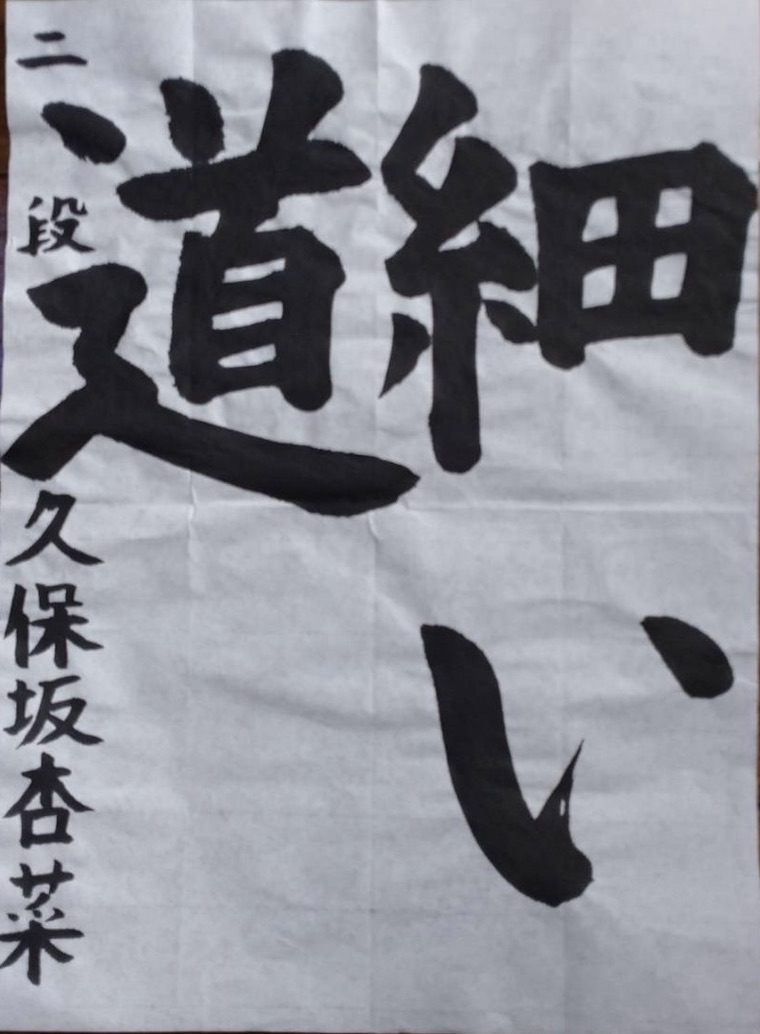 細い
道
二段 久保坂杏菜